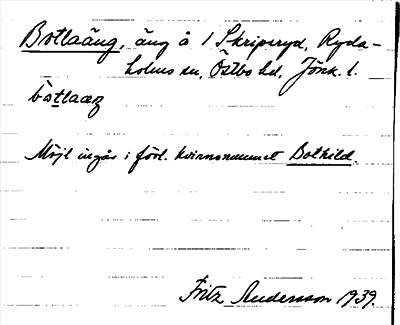 Botlaäng, äng å 1 Skripsryd, Ryda-
holms sn, Östbo hd, Jönk. l.
bòtlaæŋ
Möjl ingår i förl. kvinnonamnet Bothild.
Fritz Andersson 1939.